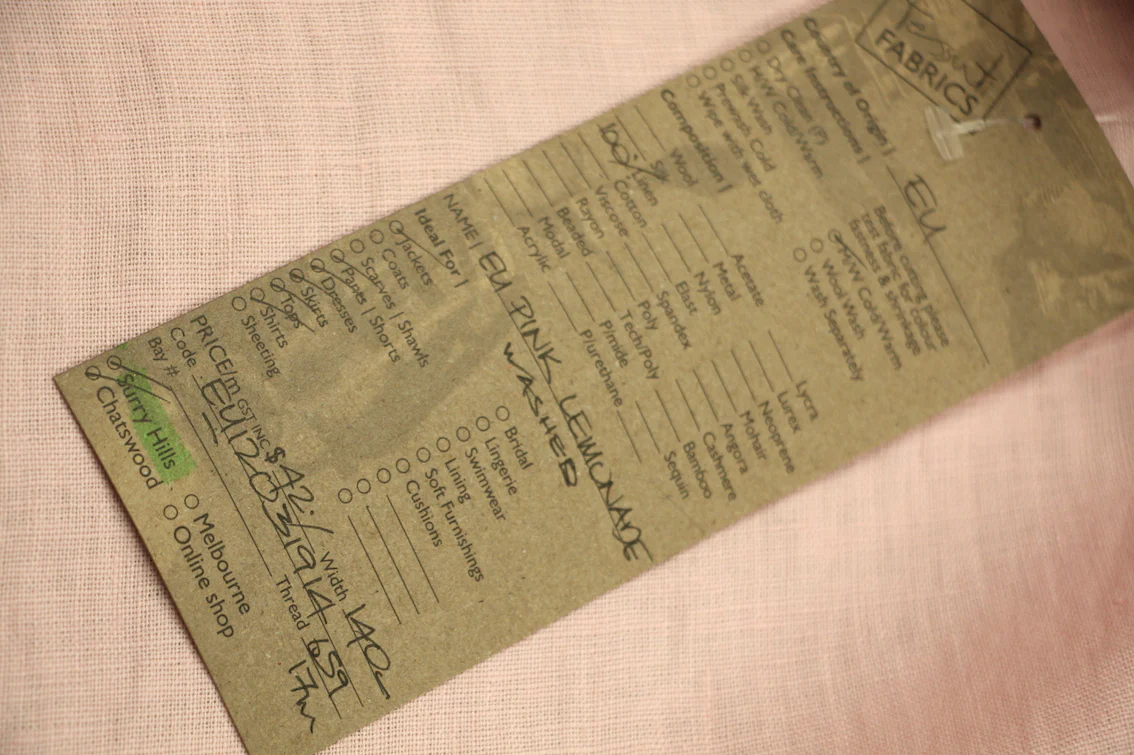 Tessuti
FABRICS
Country of Origin | EU
Care Instructions | Before cutting please
test fabric for colour
fastness & shrinkage
Dry Clean (P)
H/W Cold/Warm
Silk Wash Cold
Prewash Cold
Wipe with wet cloth
M/W Cold/Warm
Wool Wash
Wash Separately
Composition |
Wool
Silk
100% Linen
Cotton
Viscose
Rayon
Beaded
Modal
Acrylic
Acetate
Metal
Nylon
Elast
Spandex
Poly
Tech/Poly
P/mide
P/urethane
Lycra
Lurex
Neoprene
Mohair
Angora
Cashmere
Bamboo
Sequin
NAME | EU PINK LEMONADE
WASHED
Ideal For |
Jackets
Coats
Scarves | Shawls
Pants | Shorts
Dresses
Skirts
Tops
Shirts
Sheeting
Bridal
Lingerie
Swimwear
Lining
Soft Furnishings
Cushions
PRICE/m GST INC $42./ Width 140c
Code EU12031914 Thread 659
Bay # 17m
Surry Hills
Chatswood
Melbourne
Online shop